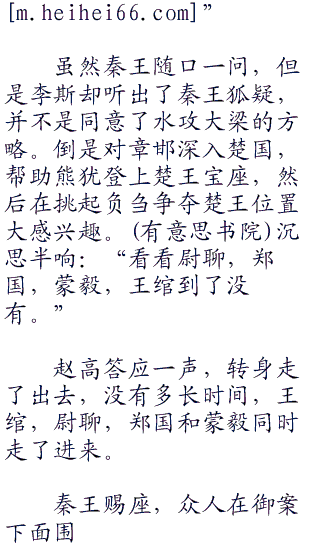 [m.heihei66.com]”
虽然秦王随口一问，但
是李斯却听出了秦王狐疑，
并不是同意了水攻大梁的方
略。倒是对章邯深入楚国，
帮助熊犹登上楚王宝座，然
后在挑起负刍争夺楚王位置
大感兴趣。(有意思书院)沉
思半响：“看看尉聊，郑
国，蒙毅，王绾到了没
有。”
赵高答应一声，转身走
了出去，没有多长时间，王
绾，尉聊，郑国和蒙毅同时
走了进来。
秦王赐座，众人在御案
下面围